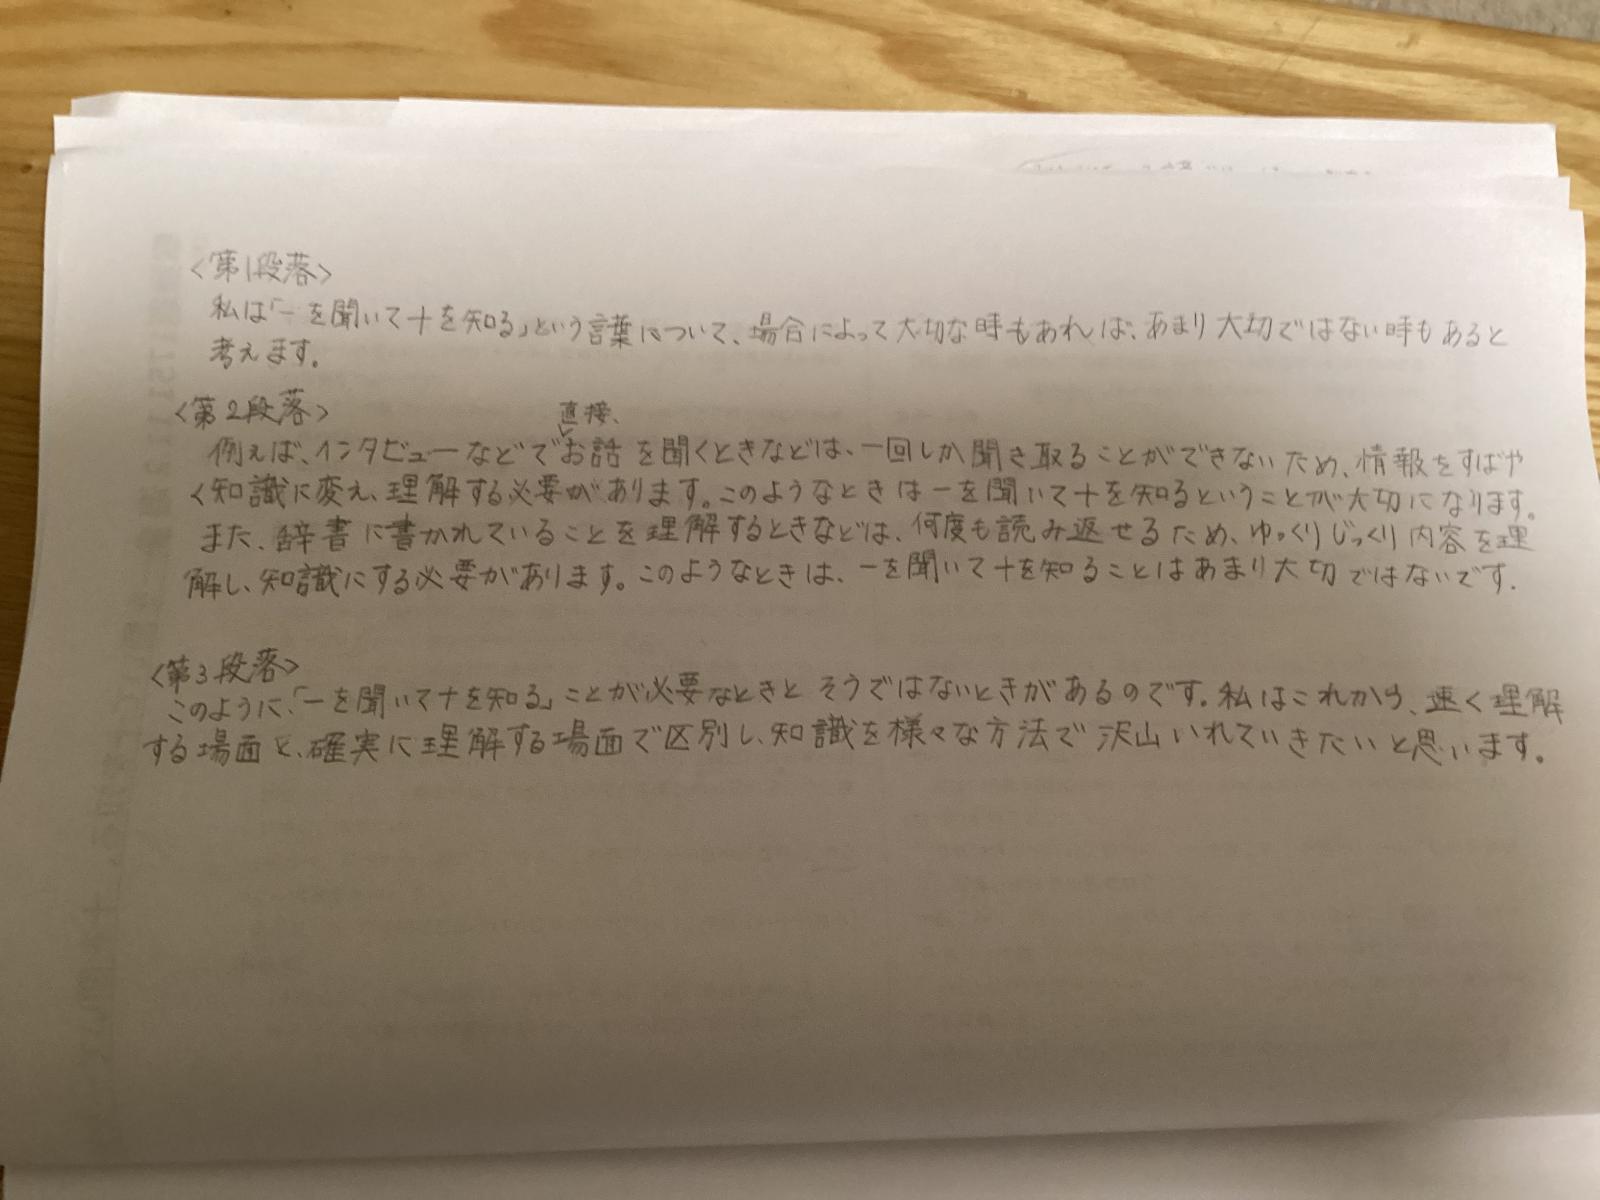 <第1段落>
私は「一を聞いて十を知る」という言葉について、場合によって大切な時もあれば、あまり大切ではない時もあると
考えます。
<第2段落>
直接、
例えば、インタビューなどでお話を聞くときなどは、一回しか聞き取ることができないため、情報をすばや
く知識に変え、理解する必要があります。このようなときは一を聞いて十を知るということが大切になります。
また、辞書に書かれていることを理解するときなどは、何度も読み返せるため、ゆっくりじっくり内容を理
解し、知識にする必要があります。このようなときは、一を聞いて十を知ることはあまり大切ではないです.
<第3段落>
このように、「一を聞いて十を知る」ことが必要なときとそうではないときがあるのです。私はこれから、速く理解
する場面と、確実に理解する場面で区別し、知識を様々な方法で沢山いれていきたいと思います。